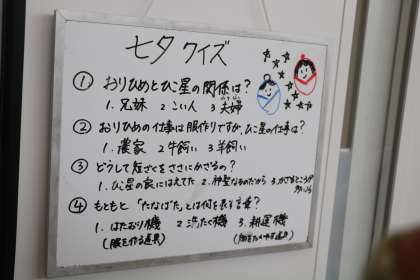 七夕クイズ
① おりひめとひこ星の関係は?
1. 兄妹 2 こい人 3 夫婦
② おりひめの仕事は服作りですが、ひこ星の仕事は?
1. 農家 2 牛飼い 3 羊飼い
③ どうして短ざくをささにかざるの?
1. ひこ星の家にはえてた 2. 神聖なものだから 3. かざるところが
④ もともと「たなばた」とは何を表す言葉?
1. はたおり機 2 洗たく機 3. 耕運機
(服を作る道具)